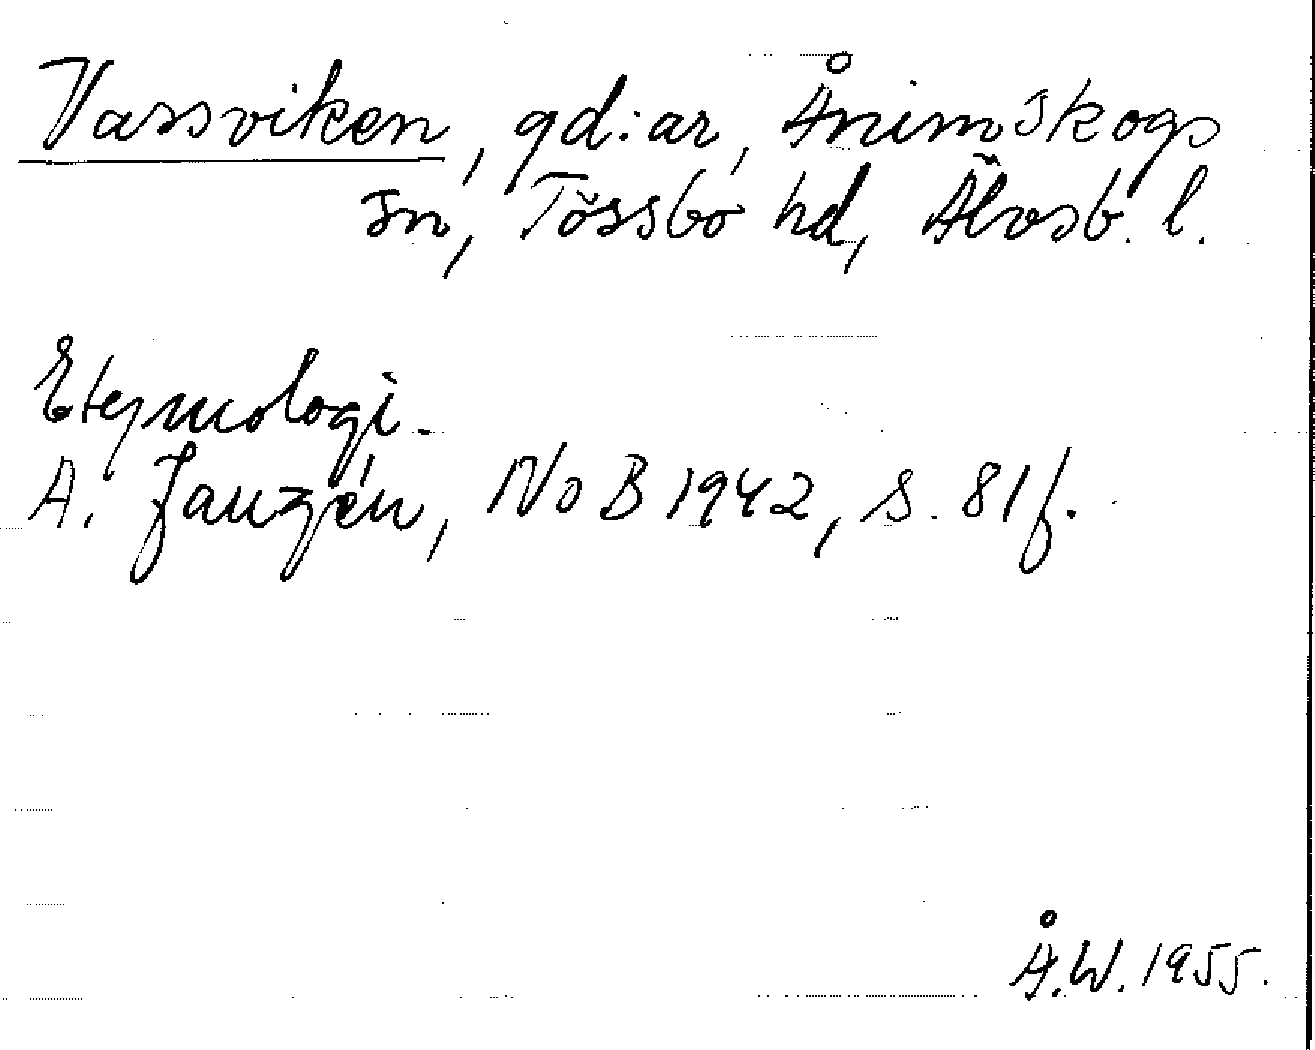 Vassviken, gd:ar, Ånimskogs
sn, Tössbo hd, Älvsb. l.
Etymologi.
A. Janzén, NoB 1942, s. 81 f.
Å.W. 1955.